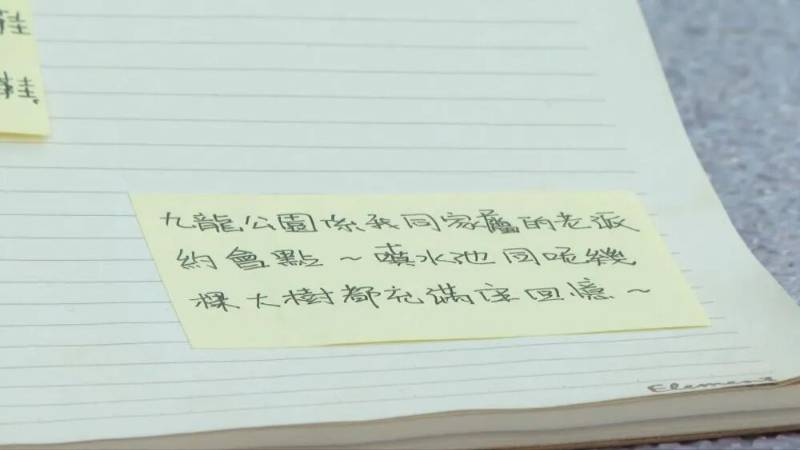 九龍公園係我同家的老派
約會點～噴水池同呢幾
棵大樹都充滿住回憶～
Element